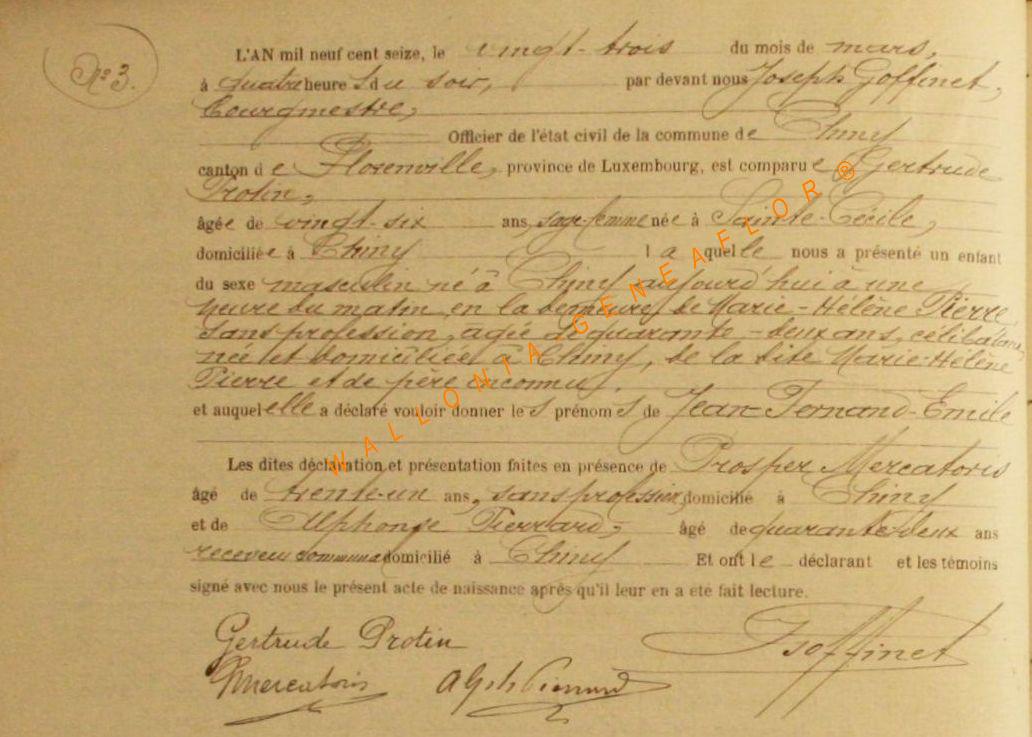 N° 3.
L'AN mil neuf cent seize, le vingt-trois du mois de mars,
à quatre heures du soir, par devant nous Joseph Goffinet,
bourgmestre,
Officier de l'état civil de la commune de Chiny
canton de Florenville, province de Luxembourg, est comparue Gertrude
Protin,
âgée de vingt-six ans, sage-femme née à Sainte-Cécile,
domiciliée à Chiny laquelle nous a présenté un enfant
du sexe masculin né à Chiny aujourd'hui à une
heure du matin en la demeure de Marie-Hélène Pierre,
sans profession, agée de quarante-deux ans, célibataire,
née et domiciliée à Chiny, de la dite Marie-Hélène
Pierre et de père inconnu.
et auquel elle a déclaré vouloir donner les prénoms de Jean-Fernand-Emile
Les dites déclaration et présentation faites en présence de Prosper Mercatoris
âgé de trente-un ans, sans profession, domicilié à Chiny
et de Alphonse Pierrard, âgé de quarante-deux ans
receveur communal domicilié à Chiny Et ont le déclarant et les témoins
signé avec nous le présent acte de naissance après qu'il leur en a été fait lecture.
Gertrude Protin JGoffinet
PMercatoris Alph Pierrard
WALLONIA GENEAFLOR ®